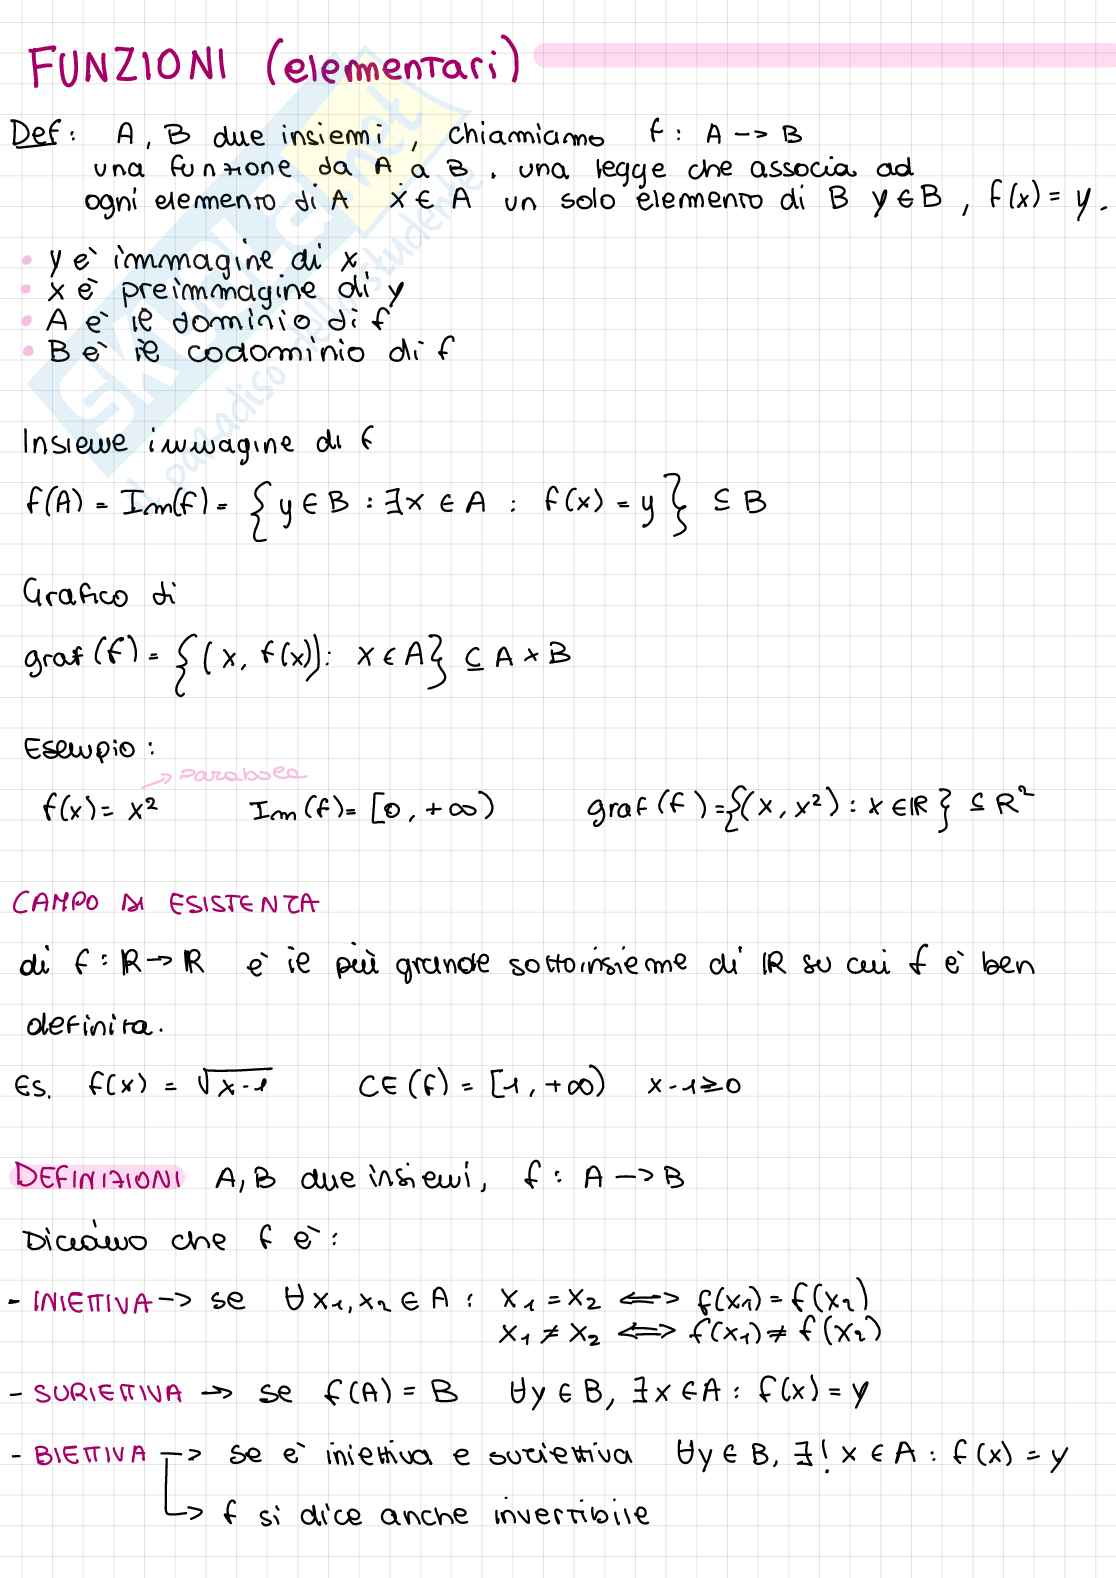 FUNZIONI (elementari)
Def: A, B due insiemi, chiamiamo f: A -> B
una funzione da A a B. una legge che associa ad
ogni elemento di A x ∈ A un solo elemento di B y ∈ B, f(x) = y.
• y è immagine di x
• x è preimmagine di y
• A è il dominio di f
• B è il codominio di f
Insieme immagine di f
f(A) = Im(f) = {y ∈ B : ∃x ∈ A : f(x) = y} ⊆ B
Grafico di
graf(f) = {(x, f(x)): x ∈ A} ⊆ A × B
Esempio:
→ parabola
f(x) = x² Im(f) = [0, +∞) graf(f) = {(x, x²) : x ∈ ℝ} ⊆ ℝ²
CAMPO DI ESISTENZA
di f: ℝ → ℝ è il più grande sottoinsieme di ℝ su cui f è ben
definita.
Es. f(x) = √x-1 CE(f) = [1, +∞) x-1≥0
DEFINIZIONI A, B due insiemi, f: A -> B
Diciamo che f è:
- INIETTIVA -> se ∀x₁, x₂ ∈ A : x₁ = x₂ <=> f(x₁) = f(x₂)
x₁ ≠ x₂ <=> f(x₁) ≠ f(x₂)
- SURIETTIVA -> se f(A) = B ∀y ∈ B, ∃x ∈ A : f(x) = y
- BIETTIVA -> se è iniettiva e suriettiva ∀y ∈ B, ∃! x ∈ A : f(x) = y
-> f si dice anche invertibile
SKUOLA.net
il paradiso dello studente